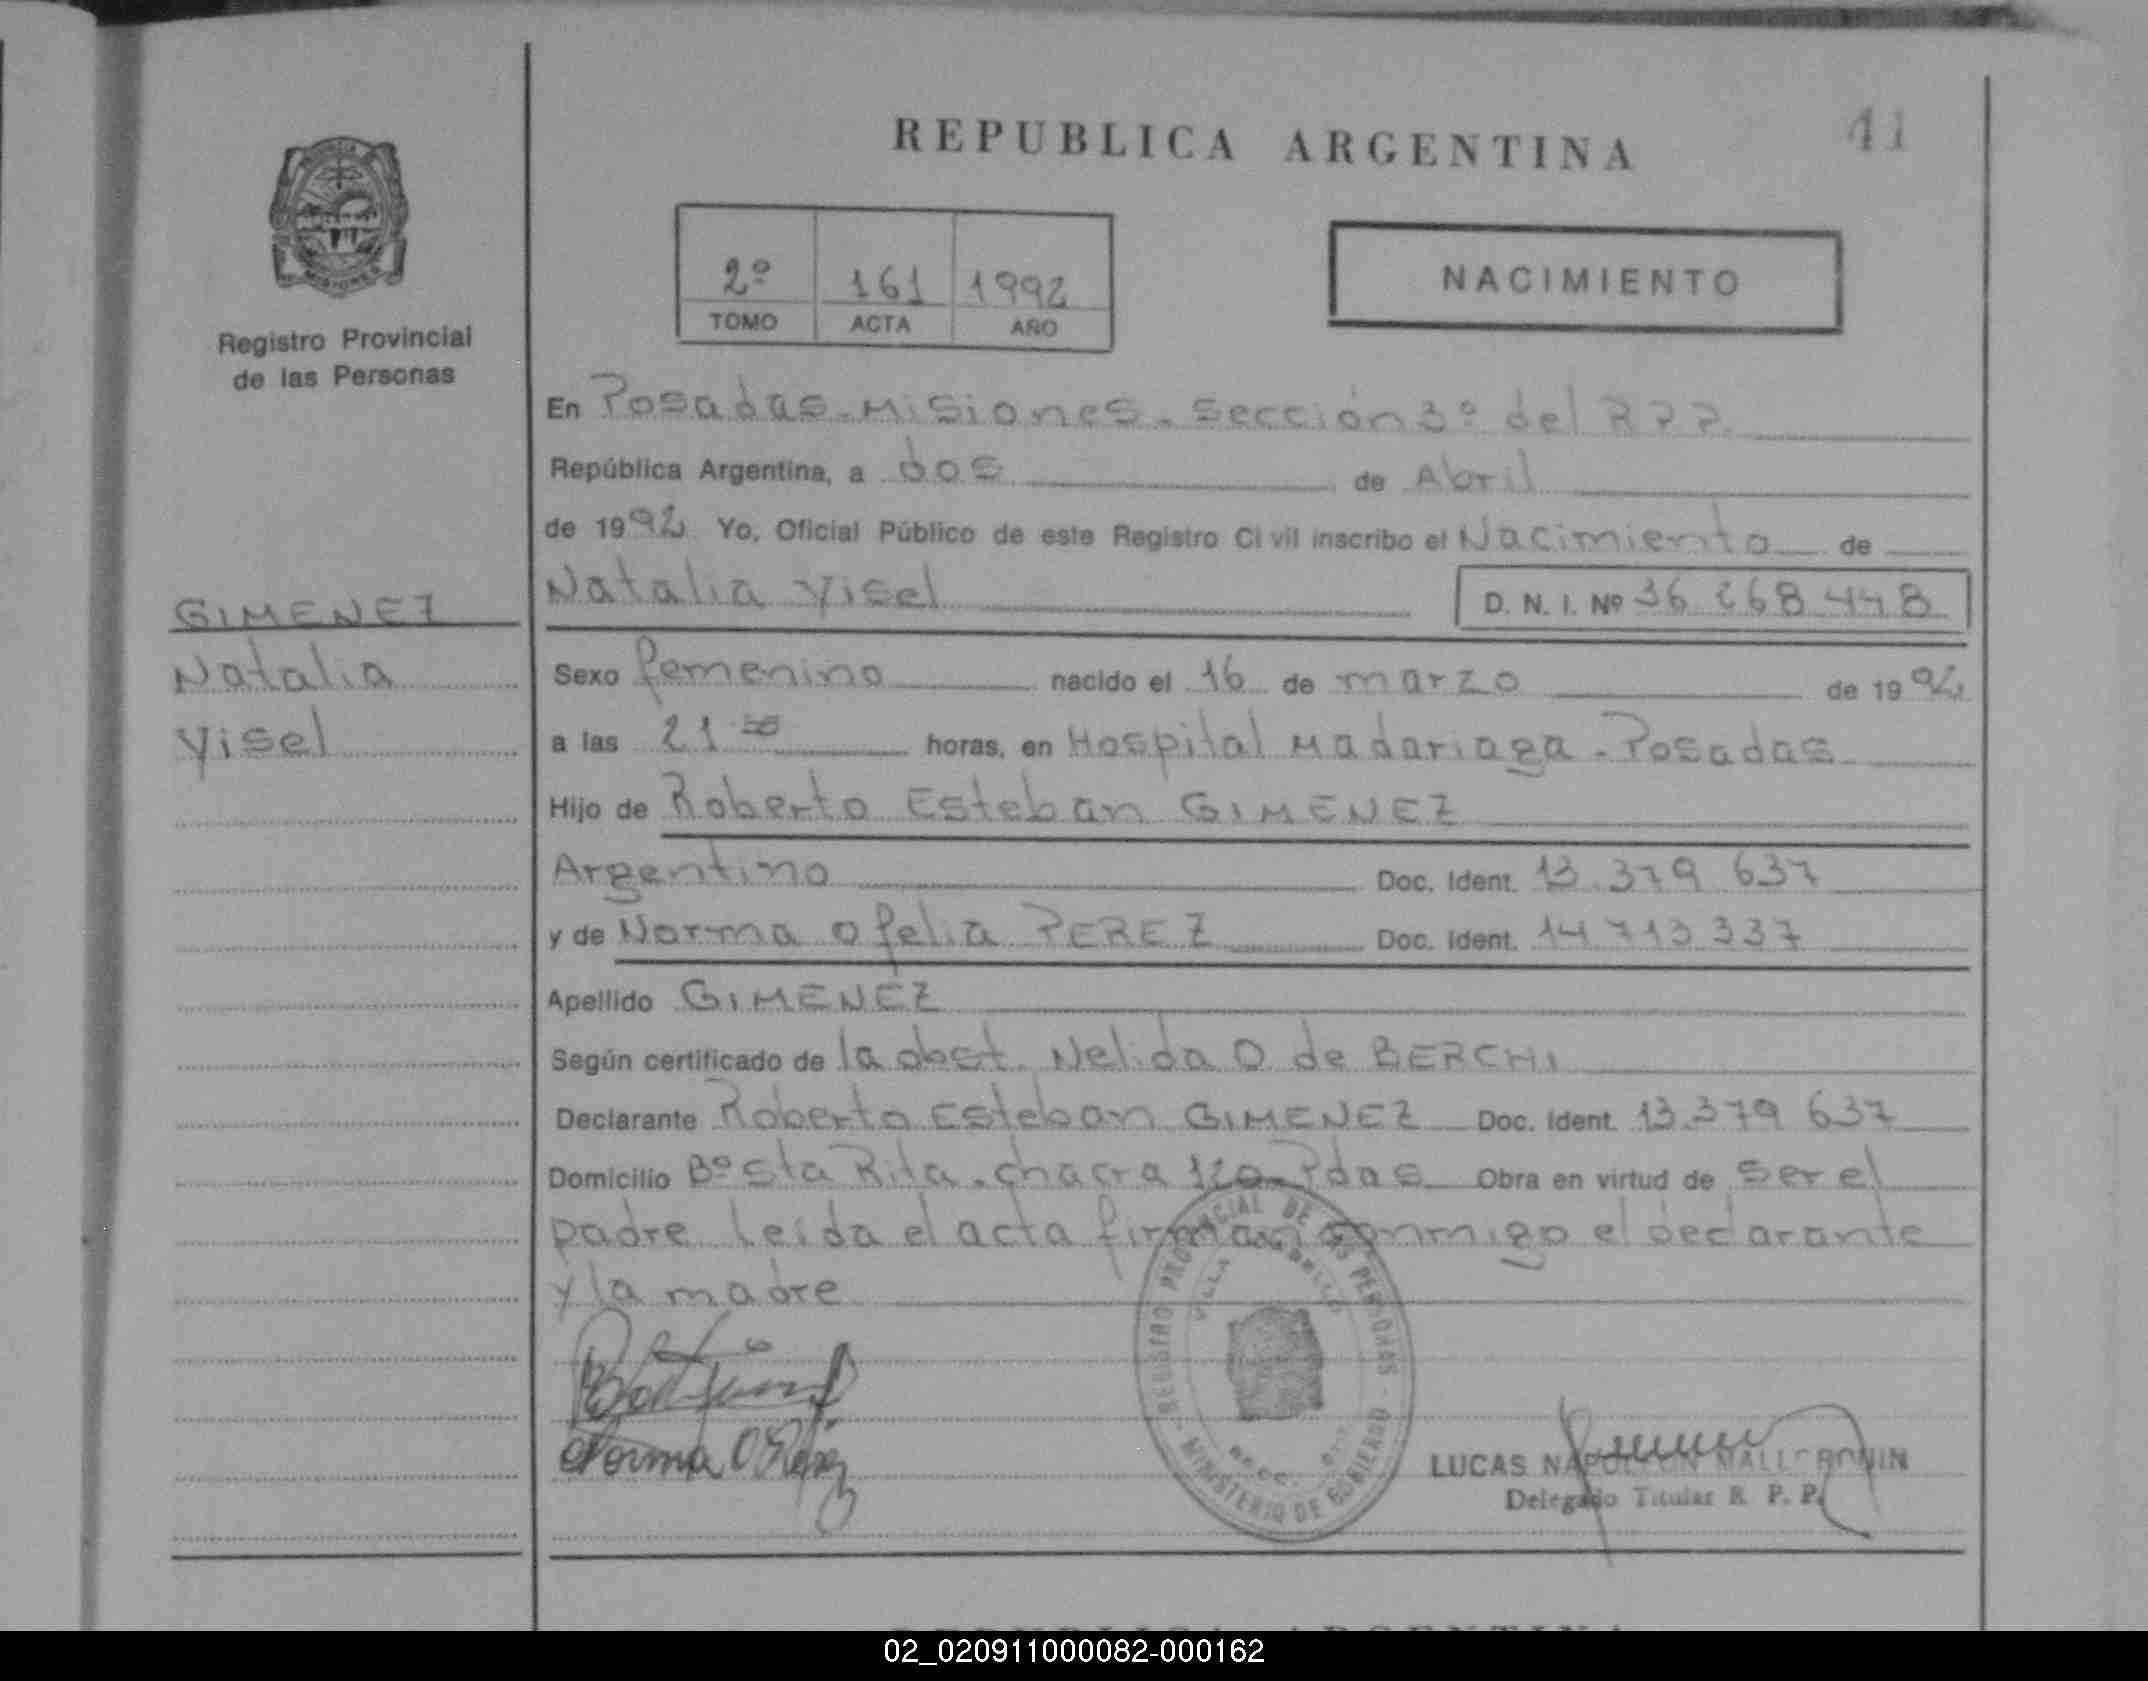 REPUBLICA ARGENTINA
41
Registro Provincial
de las Personas
2º 161 1992
TOMO ACTA AÑO
NACIMIENTO
En Posadas-Misiones-Sección 3º del RPP.
República Argentina, a dos de Abril
de 1992 Yo, Oficial Público de este Registro Civil inscribo el Nacimiento de
Natalia Yisel D. N. I. Nº 36 268 448
GIMENEZ
Natalia
Yisel
Sexo femenino nacido el 16 de marzo de 1992
a las 21 horas, en Hospital Madariaga-Posadas
Hijo de Roberto Esteban GIMENEZ
Argentino Doc. Ident. 13.379 637
y de Norma Ofelia PEREZ Doc. Ident. 14 713 337
Apellido GIMENEZ
Según certificado de la obst. Nelida O de BERCHI
Declarante Roberto Esteban GIMENEZ Doc. Ident. 13.379 637
Domicilio Bº Sta Rita-chacra 120-Pdas Obra en virtud de ser el
padre Leída el acta firman conmigo el declarante
y la madre
REGISTRO PROVINCIAL DE LAS PERSONAS - MINISTERIO DE GOBIERNO
VILLA
Norma O Perez
LUCAS NAPOLEON
Delegado Titular R. P. P.
REPUBLICA ARGENTINA
02_020911000082-000162